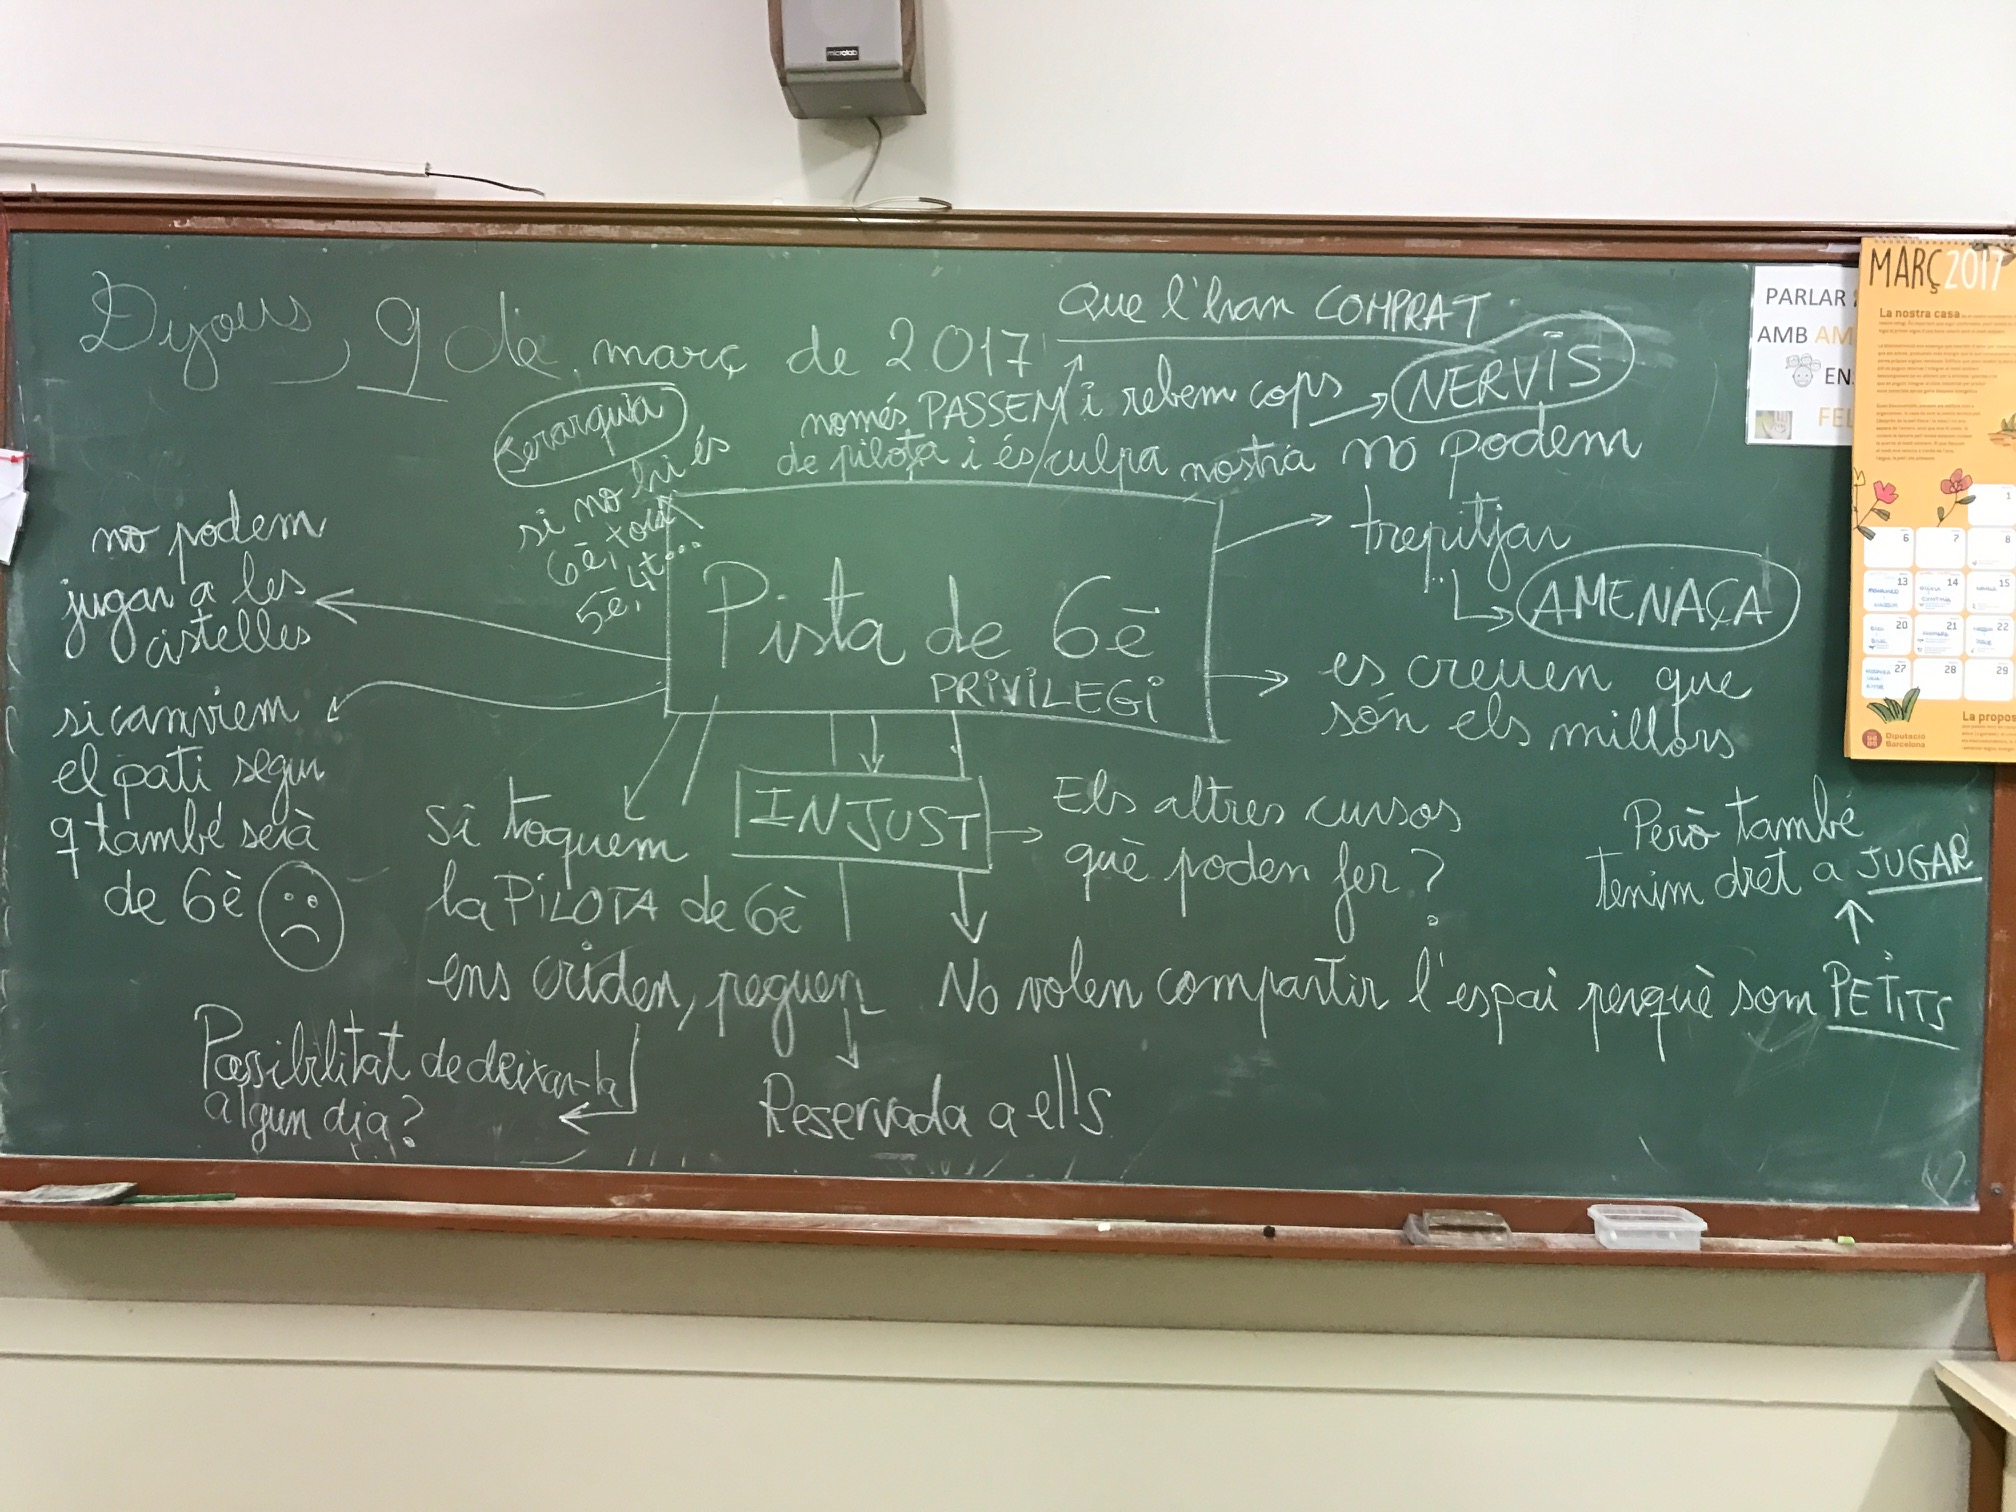 microlab
Dijous, 9 de març de 2017
Que l'han COMPRAT
Jerarquia
si no hi és
6è, toca
5è, 4t...
només PASSEM i rebem cops
de pilota i és culpa nostra
NERVIS
no podem
trepitjar
AMENAÇA
no podem
jugar a les
cistelles
Pista de 6è
PRIVILEGI
es creuen que
són els millors
si canviem
el pati segur
q també serà
de 6è
si toquem
la PILOTA de 6è
ens criden, peguen
INJUST
Els altres cursos
què poden fer?
Però també
tenim dret a JUGAR
No volen compartir l'espai perquè som PETITS
Possibilitat de deixar-la
algun dia?
Reservada a ells
PARLAR
AMB AM
EN
FEL
MARÇ 2017
La nostra casa
1
6 7 8
13 14 15
20 21 22
27 28 29
La propos
Diputació
Barcelona